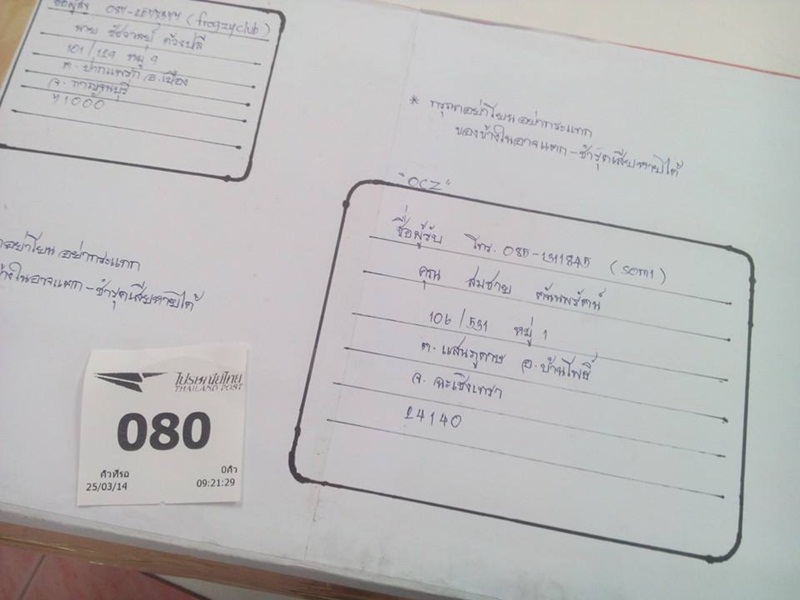 ชื่อผู้ส่ง (frogzyclub)
นาย
101/129 หมู่ 9
ต. ปากแพรก อ.เมือง
จ. กาญจนบุรี
71000
* กรุณาอย่าโยน อย่ากระแทก
ของข้างในอาจแตก-ชำรุดเสียหายได้
"OCZ"
ชื่อผู้รับ โทร. 085-1311845 (som1)
คุณ สมชาย
106/531 หมู่ 1
ต. แสนภูดาษ อ.บ้านโพธิ์
จ. ฉะเชิงเทรา
24140
อย่าโยน อย่ากระแทก
ข้างในอาจแตก-ชำรุดเสียหายได้
ไปรษณีย์ไทย
THAILAND POST
080
คิวที่รอ 0คิว
25/03/14 09:21:29